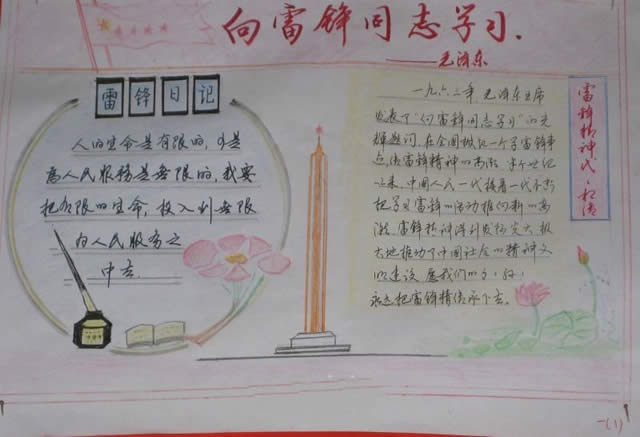 向雷锋同志学习.
——毛泽东
雷锋日记
人的生命是有限的，可是
为人民服务是无限的，我要
把有限的生命，投入到无限
的人民服务之
中去.
一九六三年，毛泽东主席
发表了“向雷锋同志学习”的光
辉题词，在全国掀起一个学雷锋事
迹、传雷锋精神的高潮，半个世纪
以来，中国人民一代接着一代不断
把学习雷锋的活动推向新的高
潮，雷锋精神得到发扬光大，极
大地推动了中国社会的精神文
明建设，愿我们
永远把雷锋精传承下去.
雷锋精神代代相传
一(1)